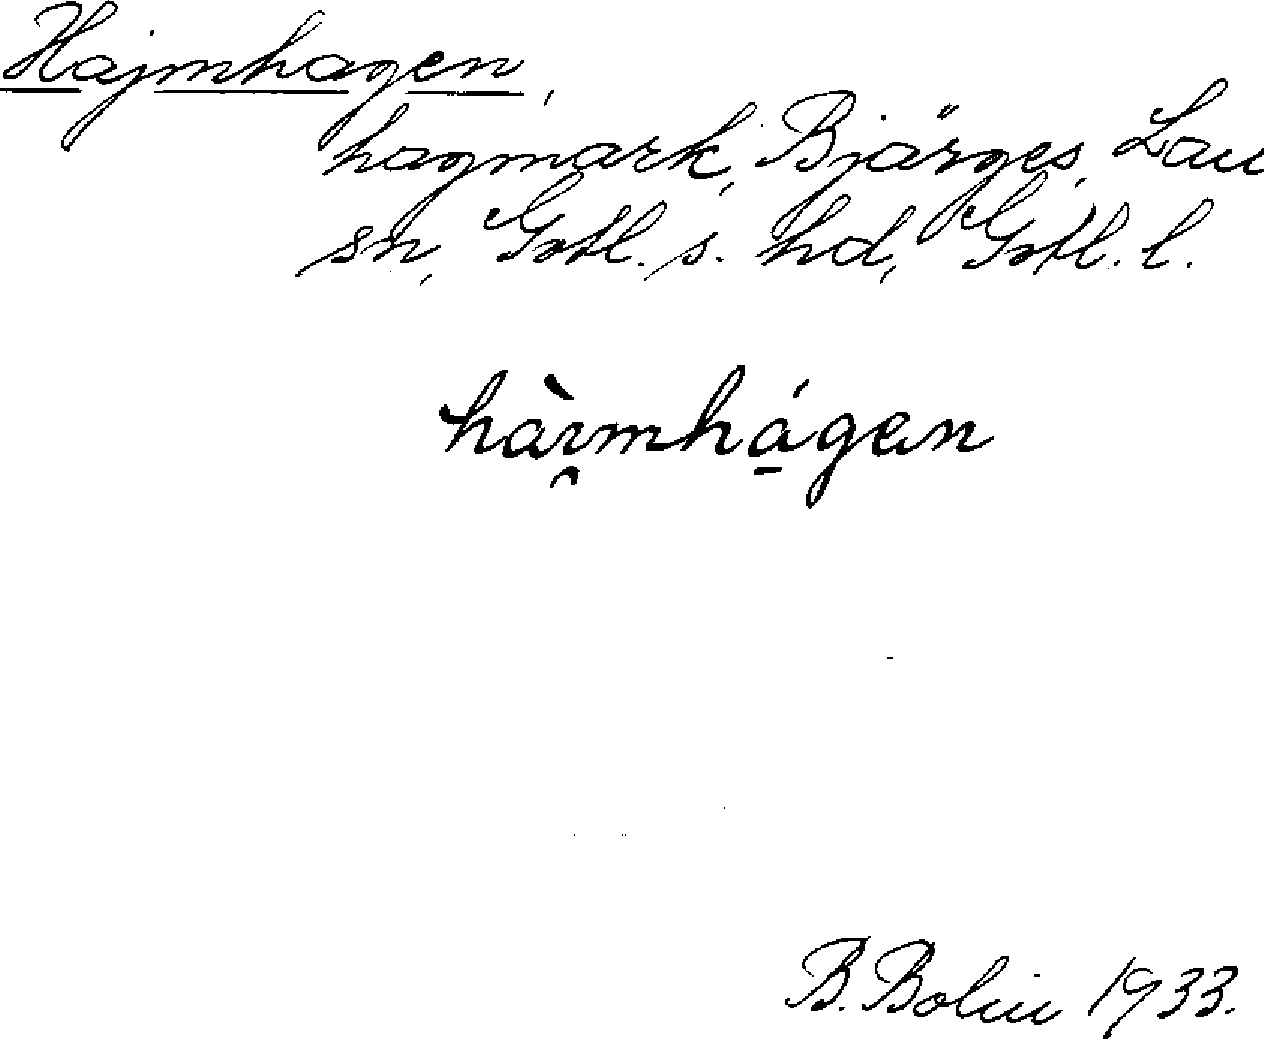 Hajmhagen,
hagmark, Bjärges, Lau
sn, Gotl. s. hd, Gotl. l.
hàı̯mhá̱gɐn
B. Bolin 1933.